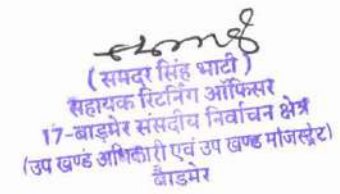 ( समदर सिंह भाटी )
सहायक रिटर्निग ऑफिसर
17-बाड़मेर संसदीय निर्वाचन क्षेत्र
(उप खण्ड अधिकारी एवं उप खण्ड मजिस्ट्रेट)
बाड़मेर